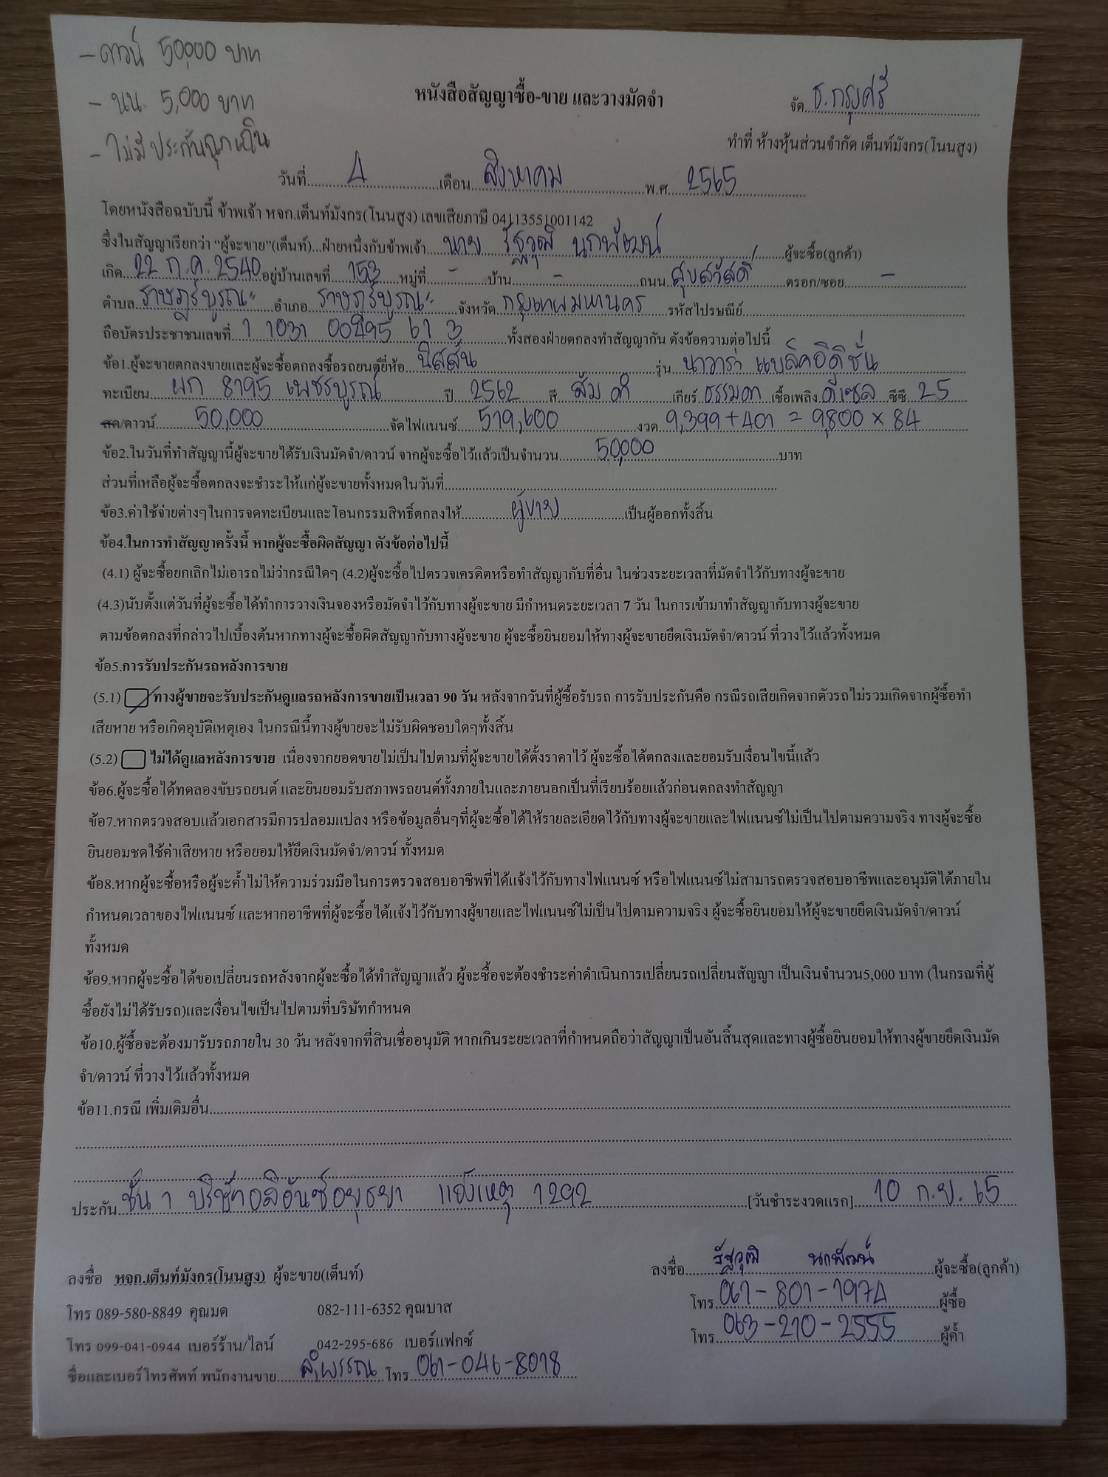 - ดาวน์ 50,000 บาท
- นน. 5,000 บาท
- ไม่มีประกันฉุกเฉิน
หนังสือสัญญาซื้อ-ขาย และวางมัดจำ
จัด ธ.กรุงศรี
ทำที่ ห้างหุ้นส่วนจำกัด เต็นท์มังกร(โนนสูง)
วันที่ 4 เดือน สิงหาคม พ.ศ. 2565
โดยหนังสือฉบับนี้ ข้าพเจ้า หจก.เต็นท์มังกร(โนนสูง) เลขเสียภาษี 0413551001142
ซึ่งในสัญญาเรียกว่า "ผู้จะขาย"(เต็นท์)...ฝ่ายหนึ่งกับข้าพเจ้า นาย รัฐวุฒิ นกพัฒน์ ผู้จะซื้อ(ลูกค้า)
เกิด 22 ก.ค. 2540 อยู่บ้านเลขที่ 153 หมู่ที่ - บ้าน - ถนน สุขสวัสดิ์ ตรอก/ซอย -
ตำบล ราษฎร์บูรณะ อำเภอ ราษฎร์บูรณะ จังหวัด กรุงเทพมหานคร รหัสไปรษณีย์
ถือบัตรประชาชนเลขที่ 1 1031 00295 61 3 ทั้งสองฝ่ายตกลงทำสัญญากัน ดังข้อความต่อไปนี้
ข้อ1.ผู้จะขายตกลงขายและผู้จะซื้อตกลงซื้อรถยนต์ยี่ห้อ นิสสัน รุ่น นาวาร่า แบล็คอิดิชั่น
ทะเบียน ผก 8195 เพชรบูรณ์ ปี 2562 สี ส้ม ดำ เกียร์ ธรรมดา เชื้อเพลิง ดีเซล ซีซี 2.5
สด/ดาวน์ 50,000 จัดไฟแนนซ์ 519,600 งวด 9,399+401 = 9,800 × 84
ข้อ2.ในวันที่ทำสัญญานี้ผู้จะขายได้รับเงินมัดจำ/ดาวน์ จากผู้จะซื้อไว้แล้วเป็นจำนวน 50,000 บาท
ส่วนที่เหลือผู้จะซื้อตกลงจะชำระให้แก่ผู้จะขายทั้งหมดในวันที่
ข้อ3.ค่าใช้จ่ายต่างๆในการจดทะเบียนและโอนกรรมสิทธิ์ตกลงให้ ผู้ขาย เป็นผู้ออกทั้งสิ้น
ข้อ4.ในการทำสัญญาครั้งนี้ หากผู้จะซื้อผิดสัญญา ดังข้อต่อไปนี้
(4.1) ผู้จะซื้อยกเลิกไม่เอารถไม่ว่ากรณีใดๆ (4.2)ผู้จะซื้อไปตรวจเครดิตหรือทำสัญญากับที่อื่น ในช่วงระยะเวลาที่มัดจำไว้กับทางผู้จะขาย
(4.3)นับตั้งแต่วันที่ผู้จะซื้อได้ทำการวางเงินจองหรือมัดจำไว้กับทางผู้จะขาย มีกำหนดระยะเวลา 7 วัน ในการเข้ามาทำสัญญากับทางผู้จะขาย
ตามข้อตกลงที่กล่าวไปเบื้องต้นหากทางผู้จะซื้อผิดสัญญากับทางผู้จะขาย ผู้จะซื้อยินยอมให้ทางผู้จะขายยึดเงินมัดจำ/ดาวน์ ที่วางไว้แล้วทั้งหมด
ข้อ5.การรับประกันรถหลังการขาย
(5.1) ทางผู้ขายจะรับประกันดูแลรถหลังการขายเป็นเวลา 90 วัน หลังจากวันที่ผู้ซื้อรับรถ การรับประกันคือ กรณีรถเสียเกิดจากตัวรถไม่รวมเกิดจากผู้ซื้อทำ
เสียหาย หรือเกิดอุบัติเหตุเอง ในกรณีนี้ทางผู้ขายจะไม่รับผิดชอบใดๆทั้งสิ้น
(5.2) ไม่ได้ดูแลหลังการขาย เนื่องจากยอดขายไม่เป็นไปตามที่ผู้จะขายได้ตั้งราคาไว้ ผู้จะซื้อได้ตกลงและยอมรับเงื่อนไขนี้แล้ว
ข้อ6.ผู้จะซื้อได้ทดลองขับรถยนต์ และยินยอมรับสภาพรถยนต์ทั้งภายในและภายนอกเป็นที่เรียบร้อยแล้วก่อนตกลงทำสัญญา
ข้อ7.หากตรวจสอบแล้วเอกสารมีการปลอมแปลง หรือข้อมูลอื่นๆที่ผู้จะซื้อได้ให้รายละเอียดไว้กับทางผู้จะขายและไฟแนนซ์ไม่เป็นไปตามความจริง ทางผู้จะซื้อ
ยินยอมชดใช้ค่าเสียหาย หรือยอมให้ยึดเงินมัดจำ/ดาวน์ ทั้งหมด
ข้อ8.หากผู้จะซื้อหรือผู้จะค้ำไม่ให้ความร่วมมือในการตรวจสอบอาชีพที่ได้แจ้งไว้กับทางไฟแนนซ์ หรือไฟแนนซ์ไม่สามารถตรวจสอบอาชีพและอนุมัติได้ภายใน
กำหนดเวลาของไฟแนนซ์ และหากอาชีพที่ผู้จะซื้อได้แจ้งไว้กับทางผู้ขายและไฟแนนซ์ไม่เป็นไปตามความจริง ผู้จะซื้อยินยอมให้ผู้จะขายยึดเงินมัดจำ/ดาวน์
ทั้งหมด
ข้อ9.หากผู้จะซื้อได้ขอเปลี่ยนรถหลังจากผู้จะซื้อได้ทำสัญญาแล้ว ผู้จะซื้อจะต้องชำระค่าดำเนินการเปลี่ยนรถเปลี่ยนสัญญา เป็นเงินจำนวน5,000 บาท (ในกรณีที่ผู้
ซื้อยังไม่ได้รับรถ)และเงื่อนไขเป็นไปตามที่บริษัทกำหนด
ข้อ10.ผู้ซื้อจะต้องมารับรถภายใน 30 วัน หลังจากที่สินเชื่ออนุมัติ หากเกินระยะเวลาที่กำหนดถือว่าสัญญาเป็นอันสิ้นสุดและทางผู้ซื้อยินยอมให้ทางผู้ขายยึดเงินมัด
จำ/ดาวน์ ที่วางไว้แล้วทั้งหมด
ข้อ11.กรณี เพิ่มเติมอื่น
ประกัน ชั้น 1 บริษัทอลิอันซ์อยุธยา แจ้งเหตุ 1292 [วันชำระงวดแรก] 10 ก.ย. 65
ลงชื่อ หจก.เต็นท์มังกร(โนนสูง) ผู้จะขาย(เต็นท์) ลงชื่อ รัฐวุฒิ นกพัฒน์ ผู้จะซื้อ(ลูกค้า)
โทร 089-580-8849 คุณมด 082-111-6352 คุณบาส โทร 061-801-1974 ผู้ซื้อ
โทร 099-041-0944 เบอร์ร้าน/ไลน์ 042-295-686 เบอร์แฟกซ์ โทร 063-210-2555 ผู้ค้ำ
ชื่อและเบอร์โทรศัพท์ พนักงานขาย ลำพรรณ โทร 061-046-8018